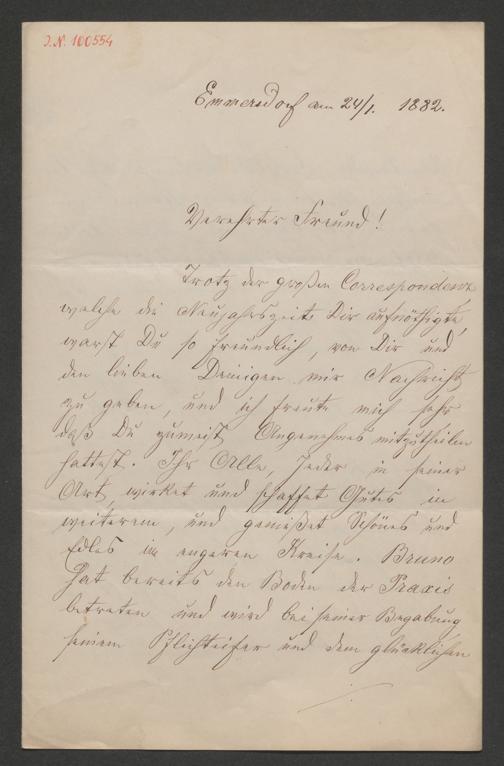 J.N. 100554
Emmersdorf am 24/1. 1882.
Verehrter Freund!
Trotz der großen Correspondenz
welche die Neujahrszeit Dir aufnöthigte,
warst Du so freundlich, von Dir und
den lieben Deinigen mir Nachricht
zu geben, und ich freute mich sehr
daß Du zumeist Angenehmes mitzutheilen
hattest. Ihr Alle, Jeder in seiner
Art, wirket und schaffet Gutes in
weiterem, und genießet Schönes und
Edles im engeren Kreise. Bruno
hat bereits den Boden der Praxis
betreten und wird bei seiner Begabung
seinem Pflichteifer und dem glücklichen